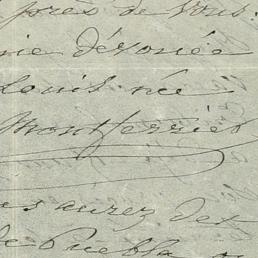 près de vous.
mie dévouée
Louis née
Montferrier
es aurez des
de Puebla